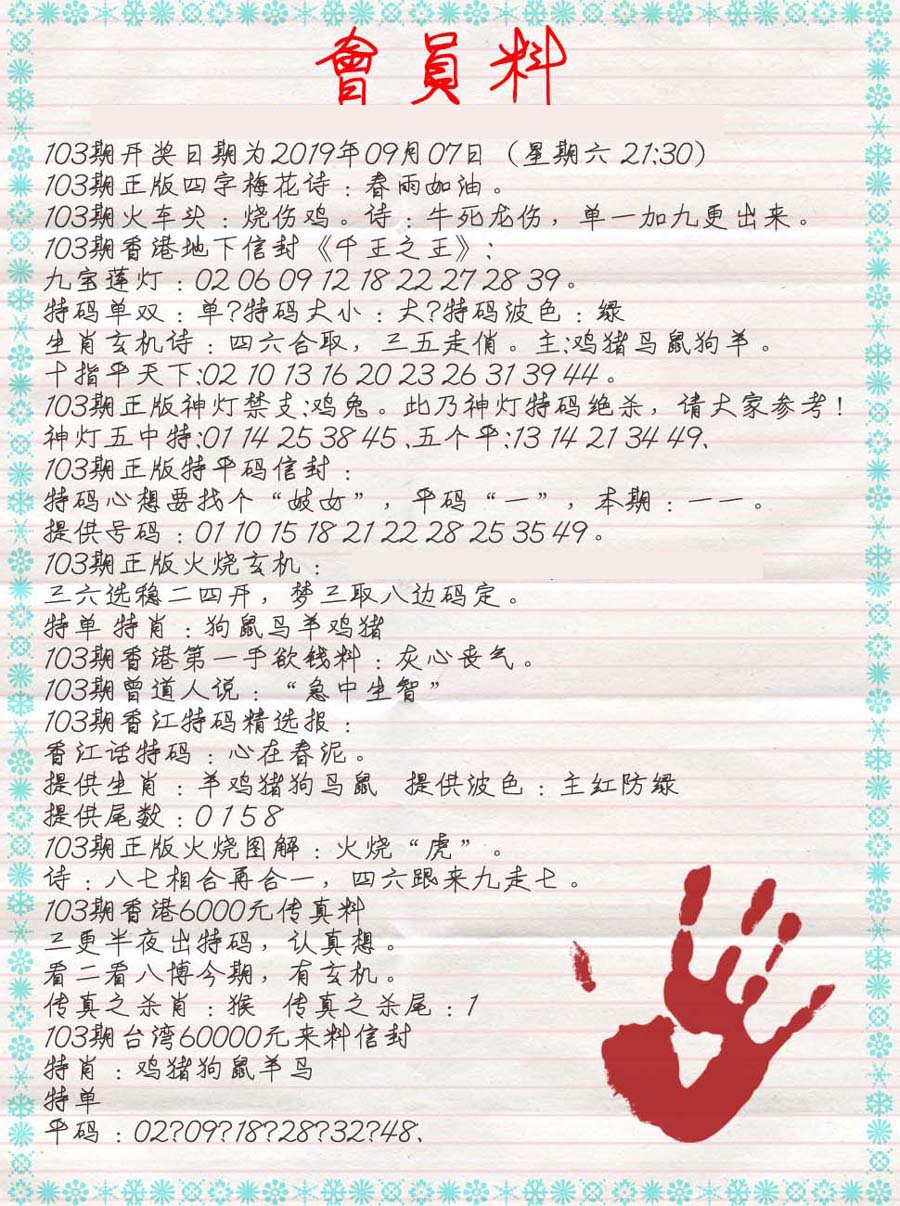 會員料
103期开奖日期为2019年09月07日（星期六 21:30）
103期正版四字梅花诗：春雨如油。
103期火车头：烧伤鸡。诗：牛死龙伤，单一加九更出来。
103期香港地下信封《千王之王》：
九宝莲灯：02 06 09 12 18 22 27 28 39。
特码单双：单?特码大小：大?特码波色：绿
生肖玄机诗：四六合取，三五走俏。主:鸡猪马鼠狗羊。
十指平天下:02 10 13 16 20 23 26 31 39 44。
103期正版神灯禁支:鸡兔。此乃神灯特码绝杀，请大家参考！
神灯五中特:01 14 25 38 45、五个平:13 14 21 34 49、
103期正版特平码信封：
特码心想要找个“妓女”，平码“一”，本期：一一。
提供号码：01 10 15 18 21 22 28 25 35 49。
103期正版火烧玄机：
三六选稳二四开，梦三取八边码定。
特单 特肖：狗鼠马羊鸡猪
103期香港第一手欲钱料：灰心丧气。
103期曾道人说：“急中生智”
103期香江特码精选报：
香江话特码：心在春泥。
提供生肖：羊鸡猪狗马鼠 提供波色：主红防绿
提供尾数：0 1 5 8
103期正版火烧图解：火烧“虎”。
诗：八七相合再合一，四六跟来九走七。
103期香港6000元传真料
三更半夜出特码，认真想。
看二看八博今期，有玄机。
传真之杀肖：猴 传真之杀尾：1
103期台湾60000元来料信封
特肖：鸡猪狗鼠羊马
特单
平码：02?09?18?28?32?48、